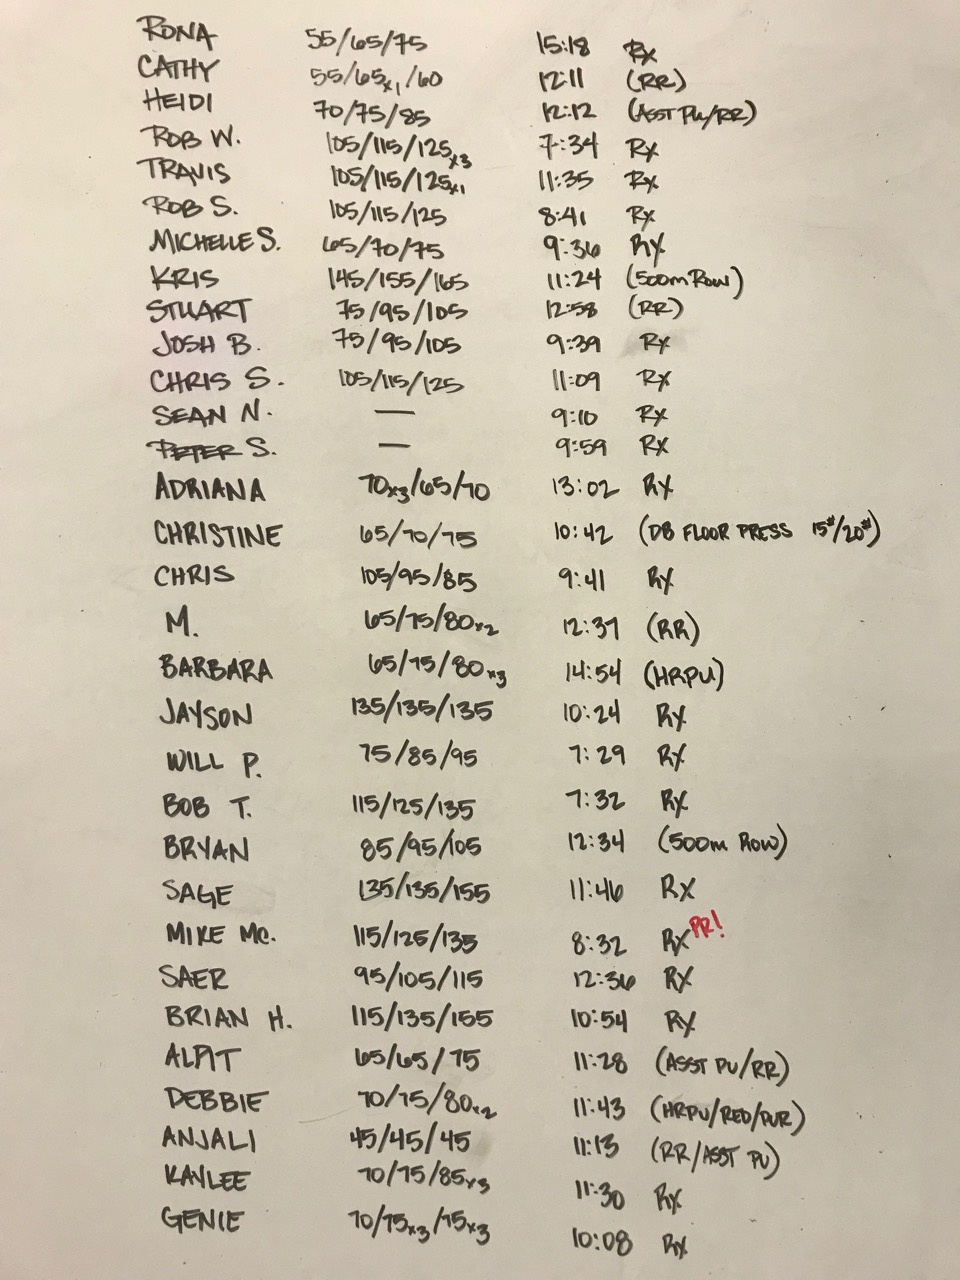 RONA 55/65/75 15:18 Rx
CATHY 55/65x1/60 12:11 (RR)
HEIDI 70/75/85 12:12 (ASST PU/RR)
ROB W. 105/115/125x3 7:34 Rx
TRAVIS 105/115/125x1 11:35 Rx
ROB S. 105/115/125 8:41 Rx
MICHELLE S. 65/70/75 9:36 RX
KRIS 145/155/165 11:24 (500m ROW)
STUART 75/95/105 12:58 (RR)
JOSH B. 75/95/105 9:39 Rx
CHRIS S. 105/115/125 11:09 Rx
SEAN N. — 9:10 Rx
PETER S. — 9:59 Rx
ADRIANA 70x3/65/70 13:02 Rx
CHRISTINE 65/70/75 10:42 (DB FLOOR PRESS 15#/20#)
CHRIS 105/95/85 9:41 Rx
M. 65/75/80x2 12:37 (RR)
BARBARA 65/75/80x3 14:54 (HRPU)
JAYSON 135/135/135 10:24 Rx
WILL P. 75/85/95 7:29 Rx
BOB T. 115/125/135 7:32 Rx
BRYAN 85/95/105 12:34 (500m ROW)
SAGE 135/135/155 11:46 Rx
MIKE MC. 115/125/135 8:32 Rx PR!
SAER 95/105/115 12:36 Rx
BRIAN H. 115/135/155 10:54 Rx
65/65/75 11:28 (ASST PU/RR)
DEBBIE 70/75/80x2 11:43 (HRPU/RED/PUR)
ANJALI 45/45/45 11:13 (RR/ASST PU)
KAYLEE 70/75/85x3 11:30 Rx
GENIE 70/75x3/75x3 10:08 Rx